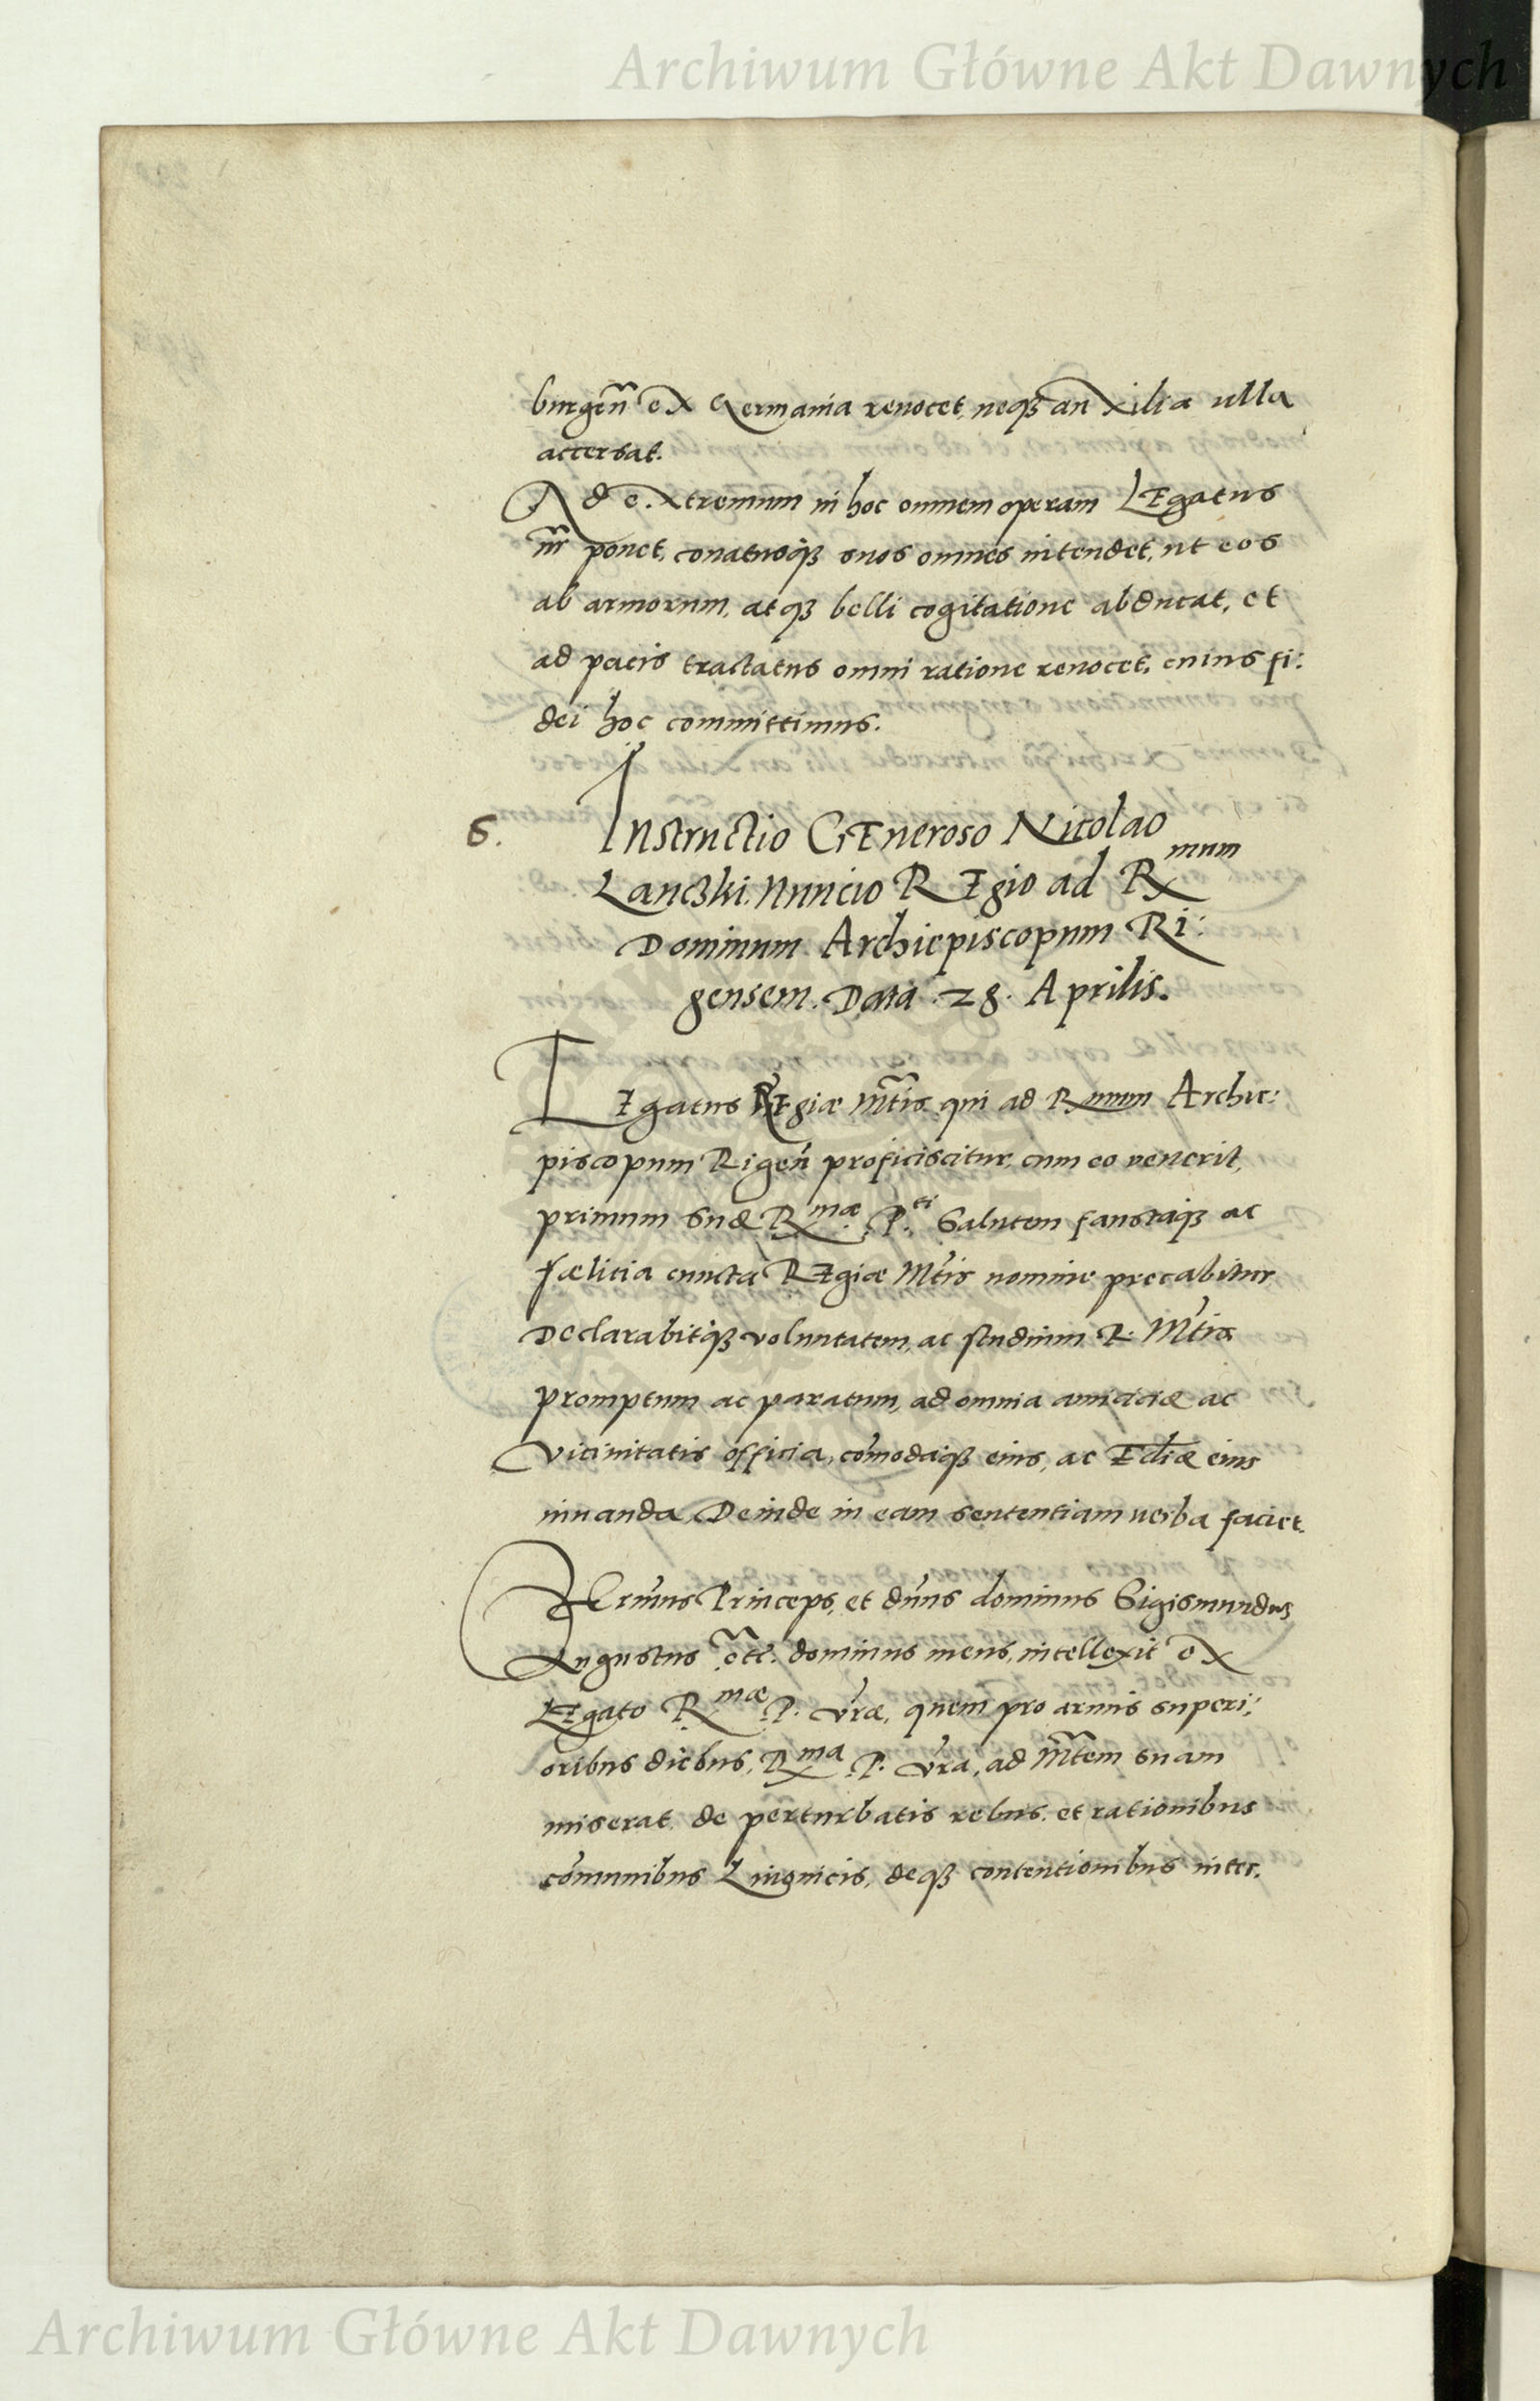 Archiwum Główne Akt Dawnych
burgeñ ex Germania reuocet, neqȝ auxilia ulla
accersat.
Ad extremum in hoc omnem operam Legatus
nr̃ ponet, conatusqȝ suos omnes intendet, ut eos
ab armorum, atqȝ belli cogitatione abducat, et
ad pacis tractatus omni ratione reuocet, cuius fi:
dei hoc committimus.
6. Instructio Generoso Nicolao
Lanczki Nuncio Regio ad Rmum
Dominum Archiepiscopum Ri:
gensem. Data 28. Aprilis.
Legatus Regiæ Mtis qui ad Rmum Archie:
piscopum Rigeñ proficiscitur, cum eo venerit,
primum Suæ Rmæ P.ti Salutem faustaqȝ ac
fælicia cuncta Regiæ Mtis nomine precabitur
Declarabitqȝ voluntatem, ac studium R. Mtis
promptum ac paratum, ad omnia amicitiæ ac
vicinitatis officia, com̃odaqȝ eius, ac Ecc̃liæ eius
iuuanda. Deinde in eam sententiam uerba faciet.
Serm̃us Princeps, et dñus dominus Sigismundus
Augustus etc̃. dominus meus, intellexit ex
Legato Rmæ P. Vræ, quem pro armis superi:
oribus diebus, Rma P. Vra, ad Mtem suam
miserat, de perturbatis rebus, et rationibus
com̃unibus Liuonicis, deqȝ contentionibus inter,
Archiwum Główne Akt Dawnych